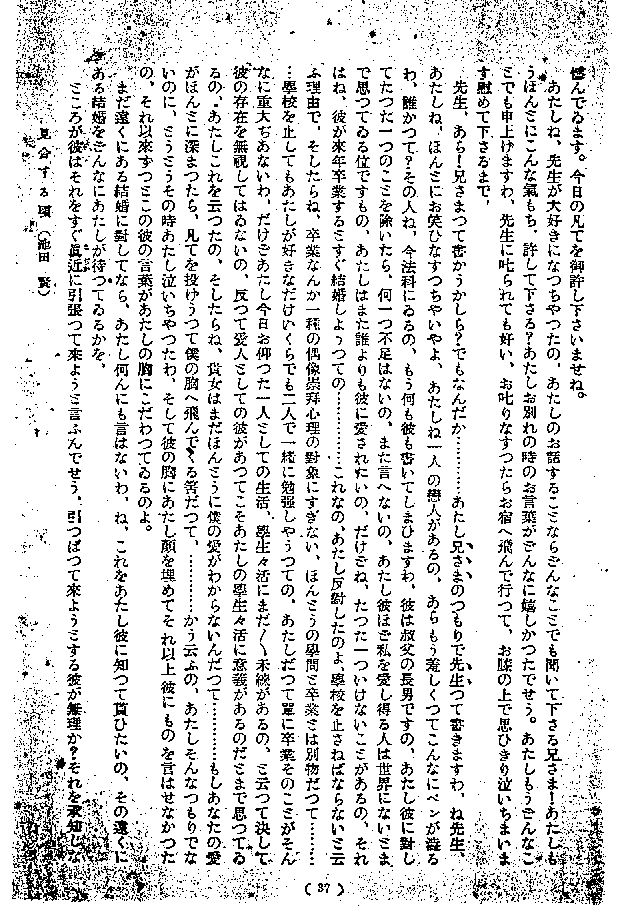 憾んでゐます。今日の凡てを御許し下さいませね。
あたしね、先生が大好きになつちやつたの、あたしのお話することならどんなことでも聞いて下さる兄さま！あたしも
うほんとにこんな氣もち、許して下さる？あたしお別れの時のお言葉がどんなに嬉しかつたでせう。あたしもうどんなこ
とでも申上げますわ、先生に叱られても好い、お叱りなすつたらお宿へ飛んで行つて、お膝の上で思ひきり泣いちまいま
す慰めて下さるまで。
先生、あら！兄さまつて書かうかしら？でもなんだか…………あたし兄さまのつもりで先生つて書きますわ、ね先生、
あたしね、ほんとにお笑ひなすつちやいやよ、あたしね一人の戀人があるの、あらもう羞しくつてこんなにペンが澁る
わ、誰かつて？その人ね、今法科にゐるの、もう何も彼も書いてしまひますわ、彼は叔父の長男ですの、あたし彼に對し
てたつた一つのことを除いたら、何一つ不足はないの、また言へないの、あたし彼ほど私を愛し得る人は世界にないとま
で思つてゐる位ですもの、あたしはまた誰よりも彼に愛されたいの、だけどね、たつた一ついけないことがあるの、それ
はね、彼が來年卒業するとすぐ結婚しようつての…………これなの、あたし反對したのよ、學校を止さねばならないと云
ふ理由で、そしたらね、卒業なんか一種の偶像崇拜心理の對象にすぎない、ほんとうの學問と卒業とは別物だつて………
…學校を止してもあたしが好きなだけいくらでも二人で一緒に勉强しやうつての、あたしだつて單に卒業そのことがそん
なに重大ぢあないわ、だけどあたし今日お仰つた一人としての生活、學生々活にまだ〱未練があるの、と云つて決して
彼の存在を無視してはゐないの、反つて愛人としての彼があつてこそあたしの學生々活に意義があるのだとまで思つてゐ
るの、あたしこれを云つたの、そしたらね、貴女はまだほんとうに僕の愛がわからないんだつて…………もしあなたの愛
がほんとに深まつたら、凡てを投げうつて僕の胸へ飛んでくる筈だつて、…………かう云ふの、あたしそんなつもりでな
いのに、とうとうその時あたし泣いちやつたわ、そして彼の胸にあたし顏を埋めてそれ以上彼にものを言はせなかつた
の、それ以來ずつとこの彼の言葉があたしの胸にこだわつてゐるのよ。
まだ遠くにある結婚に對してなら、あたし何んにも言はないわ、ね、これをあたし彼に知つて貰ひたいの、その遠くに
ある結婚をどんなにあたしが待つてゐるかを、
ところが彼はそれをすぐ眞近に引張つて來ようと言ふんでせう、引つぱつて來ようとする彼が無理か？それを承知しな
見合する頃（池田　賢）
（37）